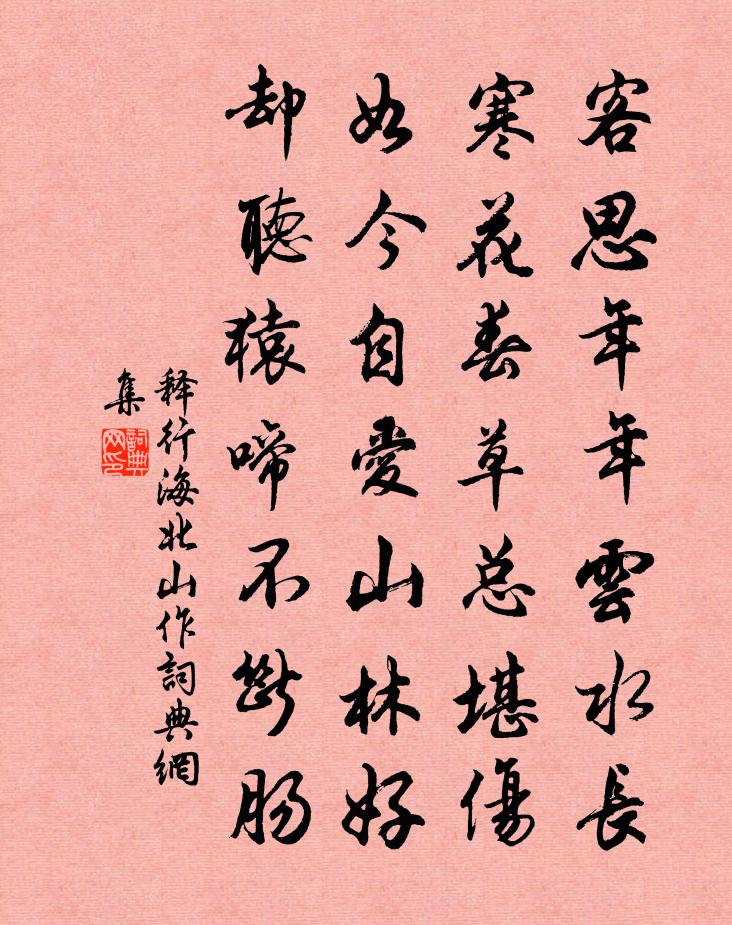 客思年年雲水長
寒花春草总堪傷
如今自愛山林好
却聽猿啼不斷肠
釋行海北山作詞典網
集
詞典
网印